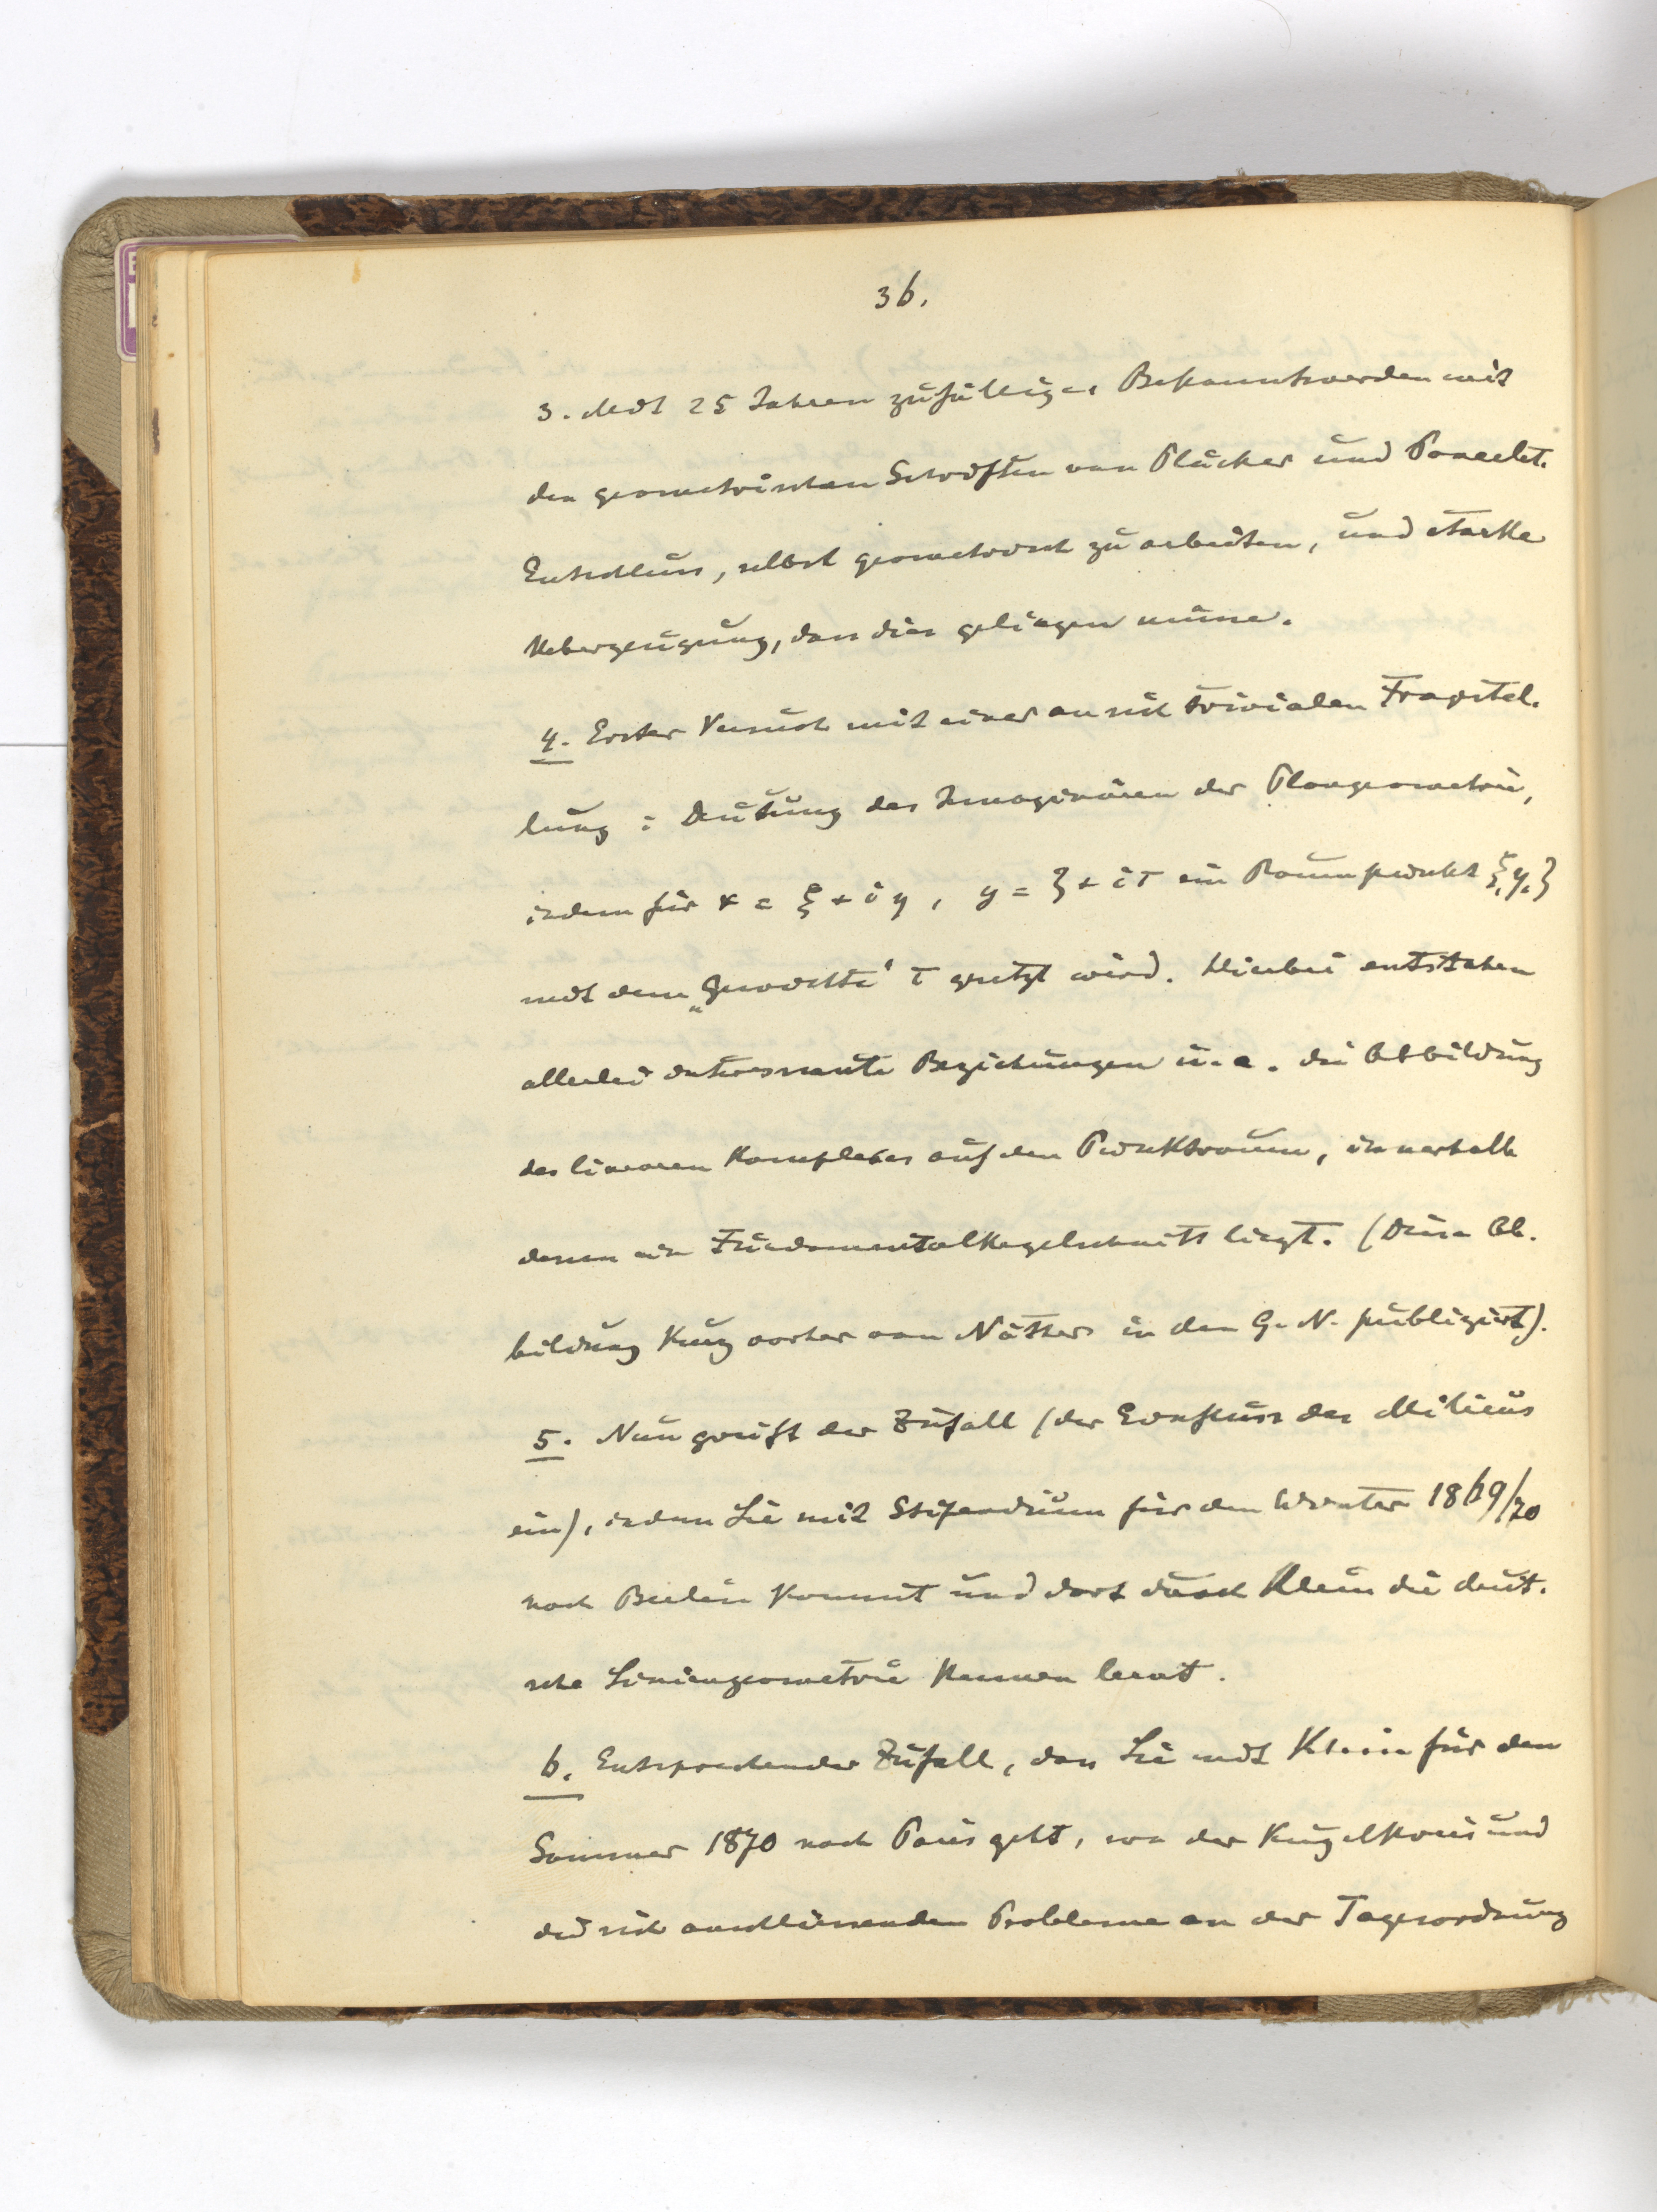 36.
3. Mit 25 Jahren zufälliges Bekanntwerden mit
den geometrischen Schriften von Plücker und Poncelet.
Entschluss, selbst geometrisch zu arbeiten, und starke
Ueberzeugung, dass dies gelingen müsse.
4. Erster Versuch mit einer an sich trivialen Fragstel-
lung: Deutung des Imaginären der Plangeometrie,
indem für x = ξ + iη, y = ζ + iτ ein Raumpunkt ξ, η, ζ
mit dem „Gewichte“ τ gesetzt wird. Hierbei entstehen
allerlei interessante Beziehungen u. a. die Abbildung
des linearen Komplexes auf den Punktraum, innerhalb
dessen ein Fundamentalkegelschnitt liegt. (Diese Ab-
bildung kurz vorher von Nöther in den G. N. publiziert).
5. Nun greift der Zufall (der Einfluss des Milieus
ein), indem Lie mit Stipendium für den Winter 1869/70
nach Berlin kommt und dort durch Klein die deut-
sche Liniengeometrie kennen lernt.
6. Entsprechender Zufall, dass Lie mit Klein für den
Sommer 1870 nach Paris geht, wo der Kugelkreis und
die sich anschliessenden Probleme an der Tagesordnung